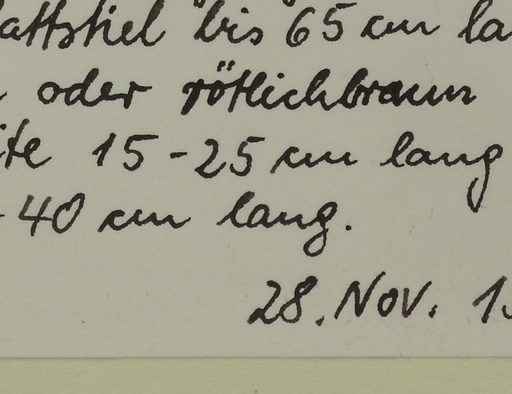 attstiel bis 65 cm la
oder rötlichbraun
ite 15-25 cm lang
- 40 cm lang.
28. Nov. 1